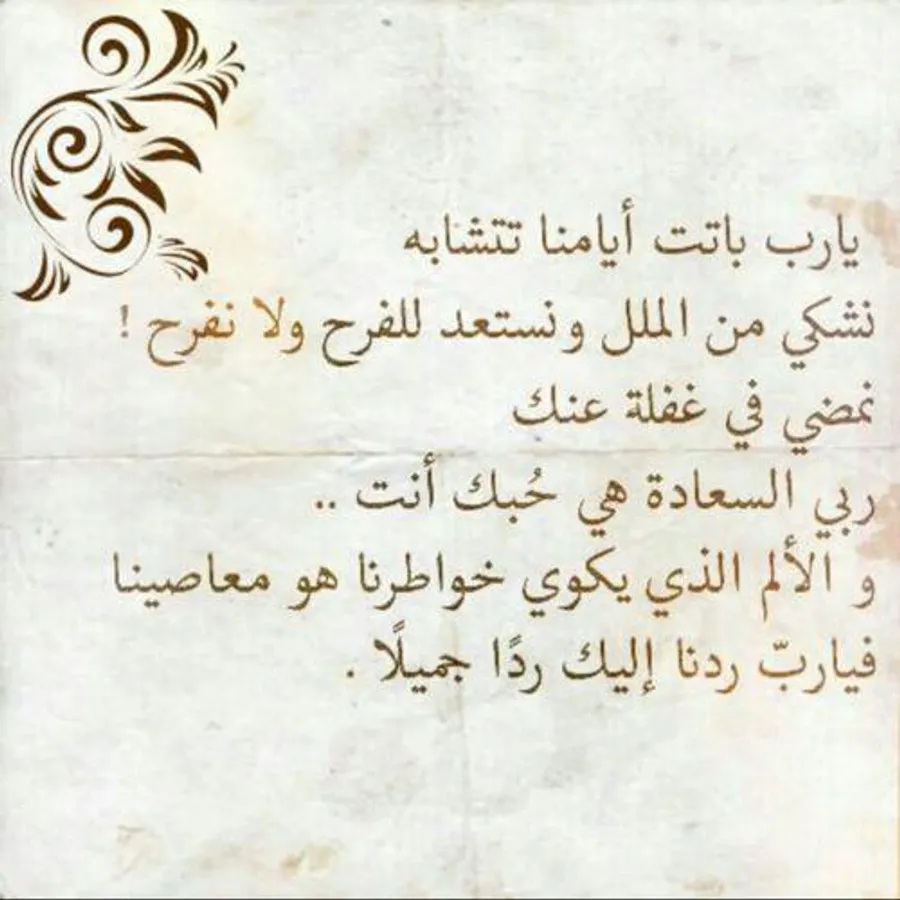 يارب باتت أيامنا تتشابه
نشكي من الملل ونستعد للفرح ولا نفرح !
نمضي في غفلة عنك
ربي السعادة هي حُبك أنت ..
و الألم الذي يكوي خواطرنا هو معاصينا
فياربّ ردنا إليك ردًا جميلًا .